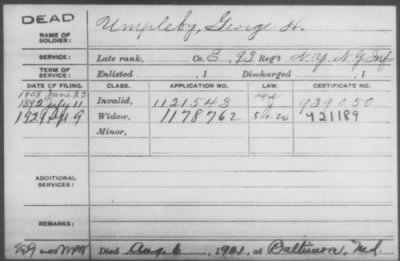 DEAD
NAME OF SOLDIER: Umpleby, George H.
SERVICE: Late rank, Co. E, 93 Reg't N.Y. N.G. Inf
TERM OF SERVICE: Enlisted , 1 Discharged , 1
DATE OF FILING. CLASS. APPLICATION NO. LAW. CERTIFICATE NO.
1908 June 23
1892 July 11 Invalid, 1121543 939050
1921 9 Widow, 1178762 421189
Minor,
ADDITIONAL SERVICES:
REMARKS:
Died Aug. 6, 1921, at Baltimore, Md.